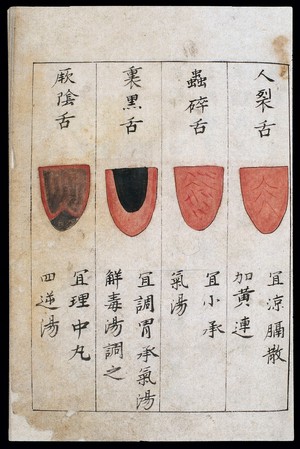 人裂舌
宜涼膈散
加黃連
蟲碎舌
宜小承
氣湯
裏黑舌
宜調胃承氣湯
解毒湯調之
厥陰舌
宜理中丸
四逆湯